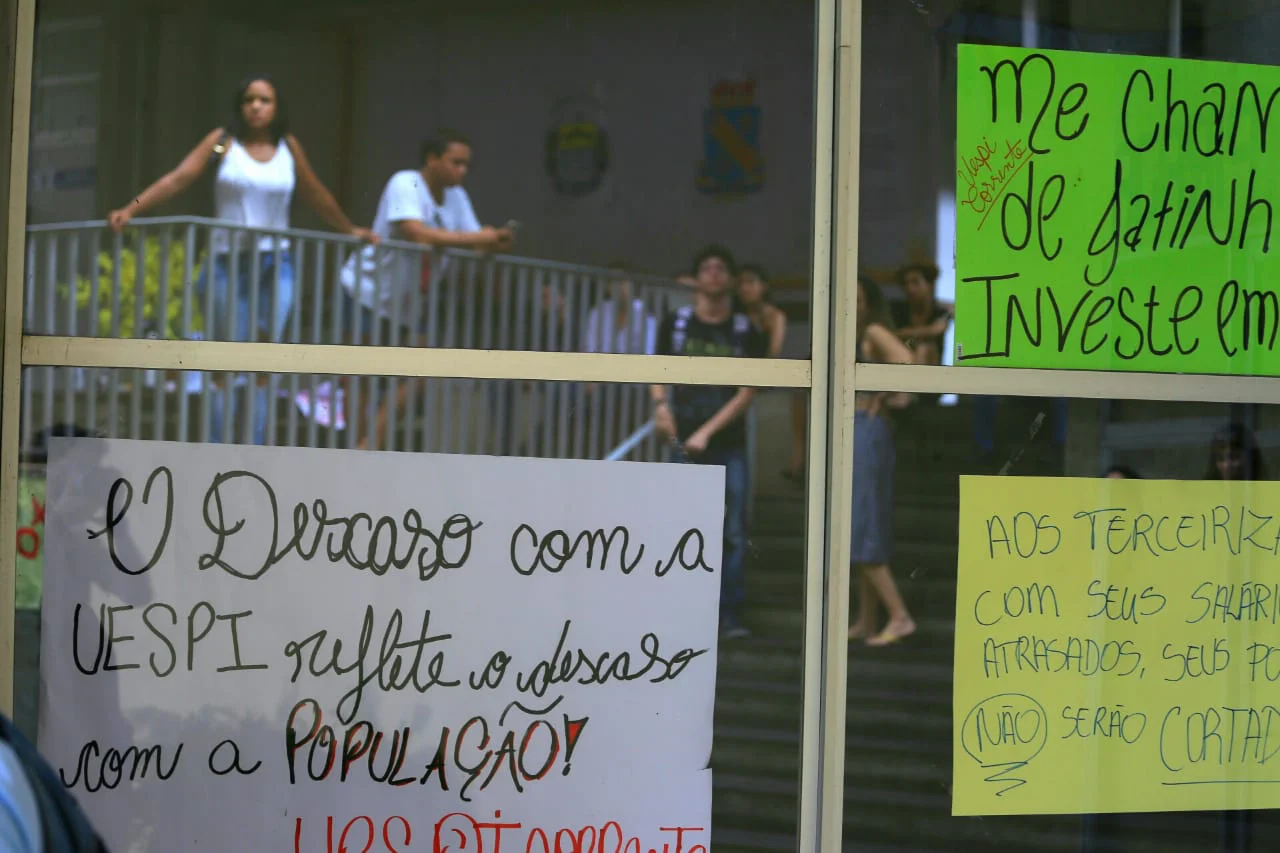 O Descaso com a
UESPI reflete o descaso
com a POPULAÇÃO!
Me Chan
de gatinh
Investe em
Uespi
Corrente
AOS TERCEIRIZA
COM SEUS SALÁRI
ATRASADOS, SEUS PO
NÃO SERÃO CORTAD